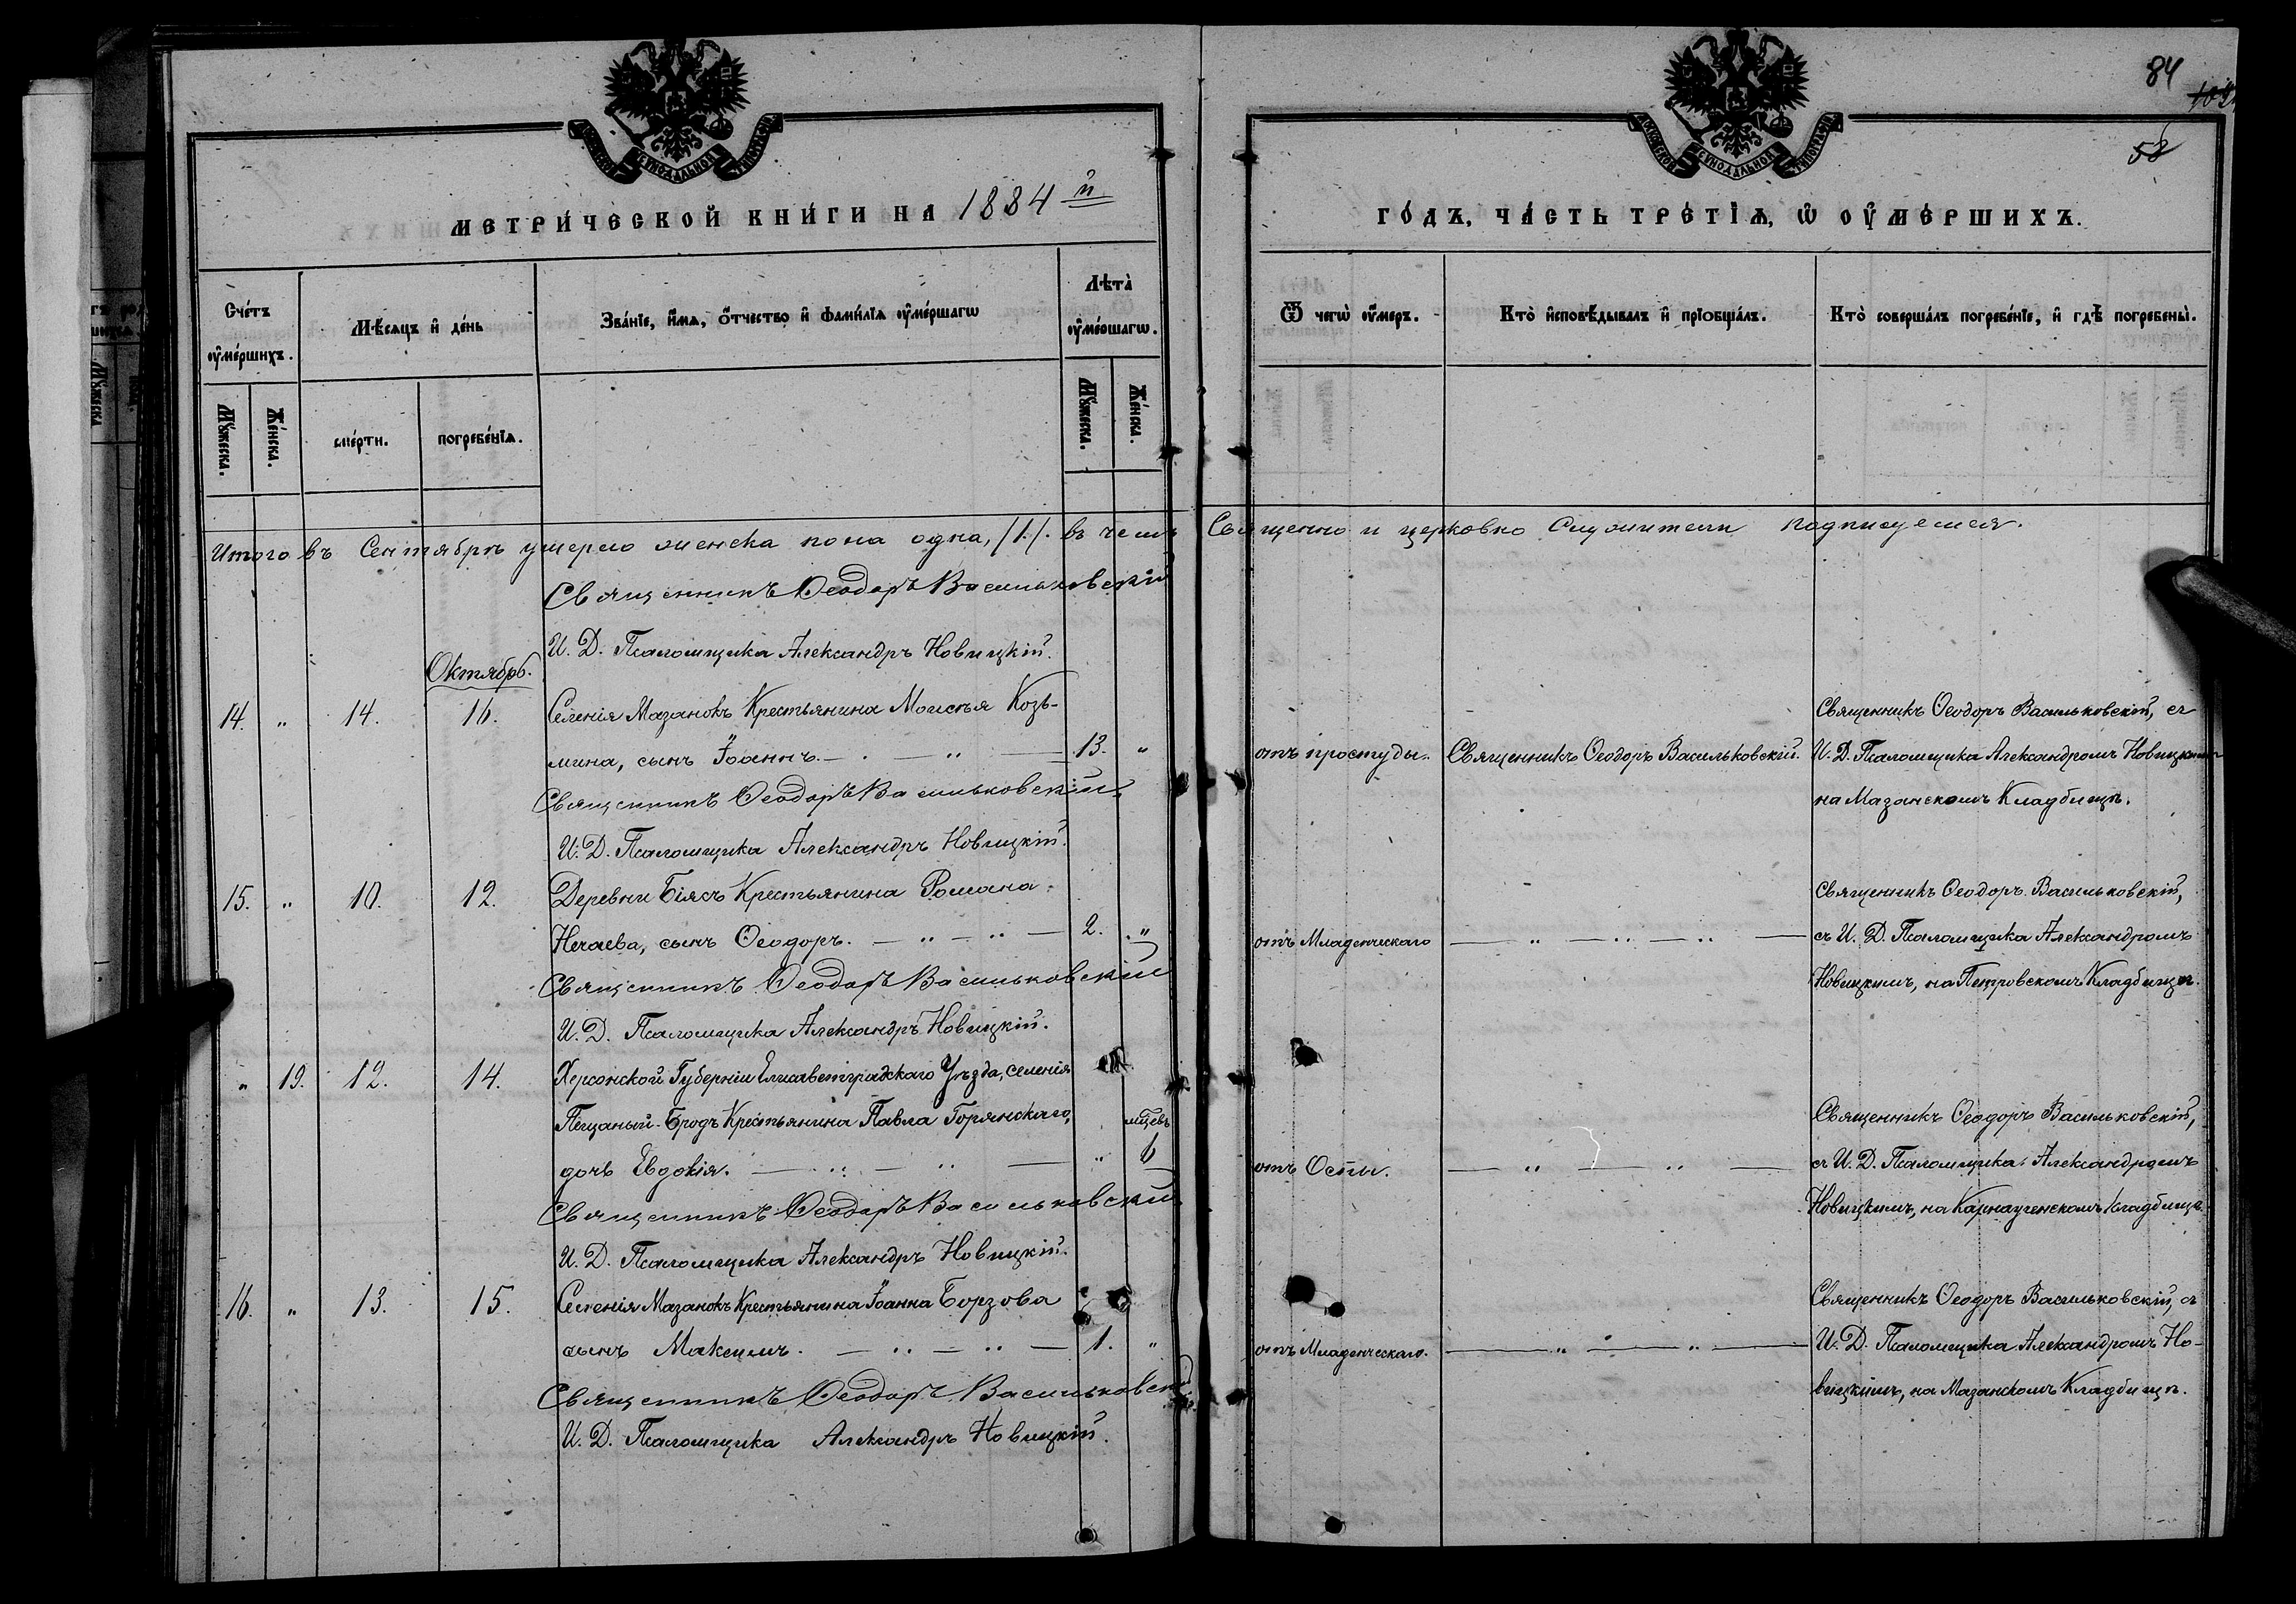 84
МЕТРИ́ЧЕСКОЙ КНИ́ГИ НА 1884 й
ГО́ДЪ, ЧА́СТЬ ТРЕ́ТІѦ, Ѡ ОУ҆МЕ́РШИХЪ.
Сче́тъ оу҆ме́ршихъ.
Мѣ́сяцъ и҆ де́нь
Зва́нїе, и҆́мѧ, ѻ҆́тчество и҆ фами́лїѧ оу҆ме́ршагѡ
Лѣта̀ оу҆ме́ршагѡ.
Ѿ чегѡ̀ оу҆́меръ.
Кто̀ и҆сповѣ́дывалъ и҆ прїобща́лъ.
Кто̀ соверша́лъ погребе́нїе, и҆ гдѣ̀ погребены̀.
Мꙋ́жеска.
Же́нска.
сме́рти.
погребе́нїѧ.
Мꙋ́жеска.
Же́нска.
Итого въ Сентябрѣ умерло женска пола одна, /1./. въ чемъ Священно и церковно служители подписуемся.
Священникъ Ѳеодоръ Васильковскій
И. Д. Псаломщика Александръ Новицкій.
Октябрь.
14. " 14. 16. Селенія Мазанокъ Крестьянина Моисея Козь-
мина, сынъ Іоаннъ. 13. " отъ простуды. Священникъ Ѳеодоръ Васильковскій.
Священникъ Ѳеодоръ Васильковскій, съ
И. Д. Псаломщика Александромъ Новицкимъ
на Мазанскомъ Кладбищѣ.
Священникъ Ѳеодоръ Васильковскій
И. Д. Псаломщика Александръ Новицкій.
15. " 10. 12. Деревни Біясъ Крестьянина Романа
Нечаева, сынъ Ѳеодоръ. — " — " — 2. " отъ Младенческаго — " — " — " —
Священникъ Ѳеодоръ Васильковскій,
съ И. Д. Псаломщика Александромъ
Новицкимъ, на Петровскомъ Кладбищѣ.
Священникъ Ѳеодоръ Васильковскій
И. Д. Псаломщика Александръ Новицкій.
" 19. 12. 14. Херсонской Губерніи Елисаветградскаго Уѣзда, селенія
Пещаный-Бродъ Крестьянина Павла Горянскаго,
дочь Евдокія. — " — " — " 6 отъ Оспы. — " — " —
Священникъ Ѳеодоръ Васильковскій,
съ И. Д. Псаломщика Александромъ
Новицкимъ, на Кладбищѣ.
Священникъ Ѳеодоръ Васильковскій
И. Д. Псаломщика Александръ Новицкій.
16. " 13. 15. Селенія Мазанокъ Крестьянина Іоанна Борзова
сынъ Максимъ. — " — " — 1. " отъ Младенческаго. — " — " —
Священникъ Ѳеодоръ Васильковскій, съ
И. Д. Псаломщика Александромъ Но-
вицкимъ, на Мазанскомъ Кладбищѣ.
Священникъ Ѳеодоръ Васильковскій
И. Д. Псаломщика Александръ Новицкій.